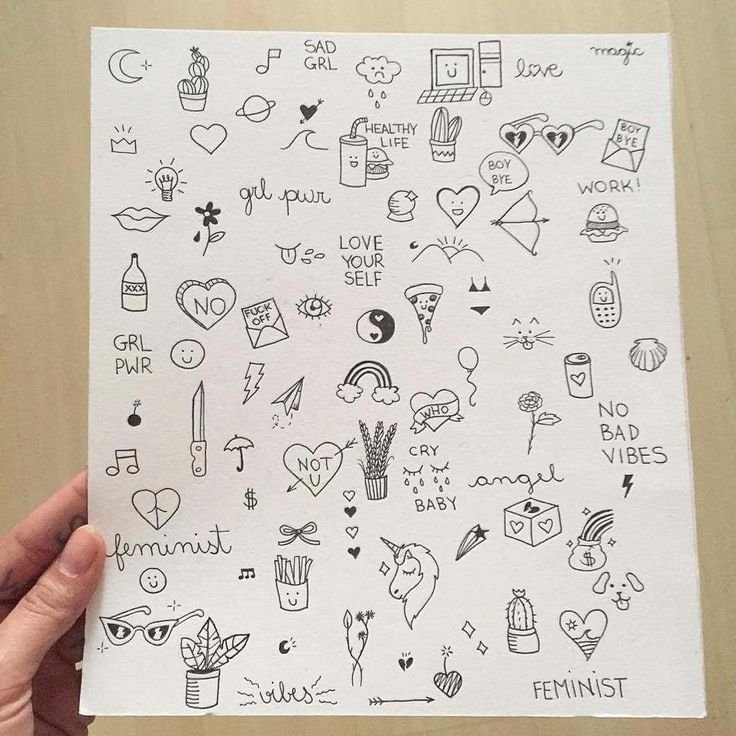 SAD
GRL
love
magic
HEALTHY
LIFE
BOY
BYE
BOY
BYE
WORK!
grl pwr
LOVE
YOUR
SELF
XXX
NO
FUCK
OFF
GRL
PWR
WHO
NO
BAD
VIBES
NOT
U
CRY
BABY
angel
$
feminist
$
vibes
FEMINIST